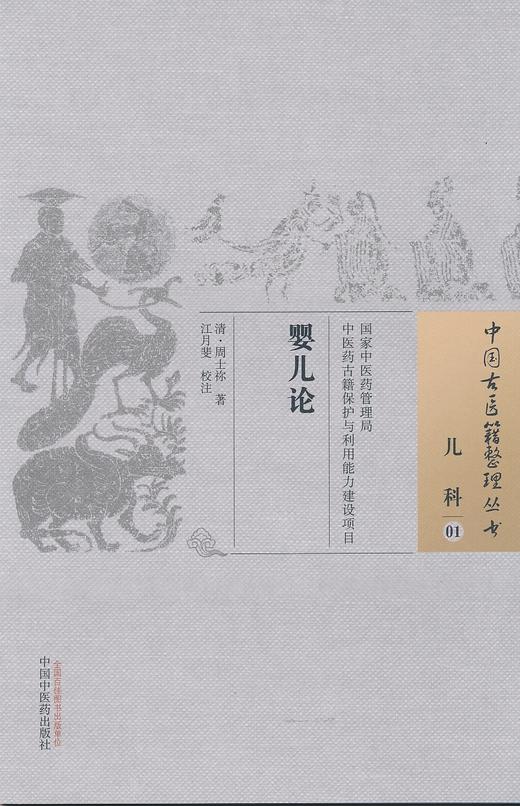 中国古医籍整理丛书
儿科
01
国家中医药管理局
中医药古籍保护与利用能力建设项目
婴儿论
清·周士祢 著
江月斐 校注
全国百佳图书出版单位
中国中医药出版社